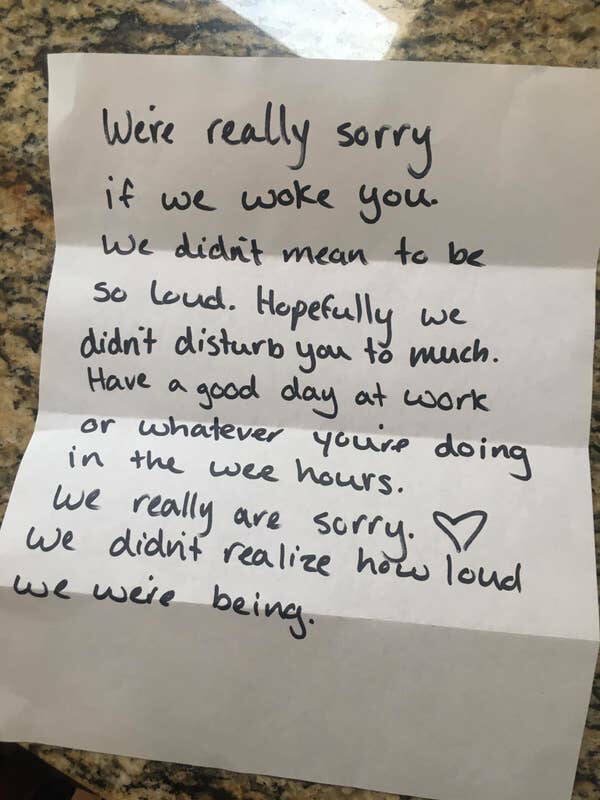 We're really sorry
if we woke you.
We didn't mean to be
so loud. Hopefully we
didn't disturb you to much.
Have a good day at work
or whatever you're doing
in the wee hours.
We really are sorry. ♡
We didn't realize how loud
we were being.